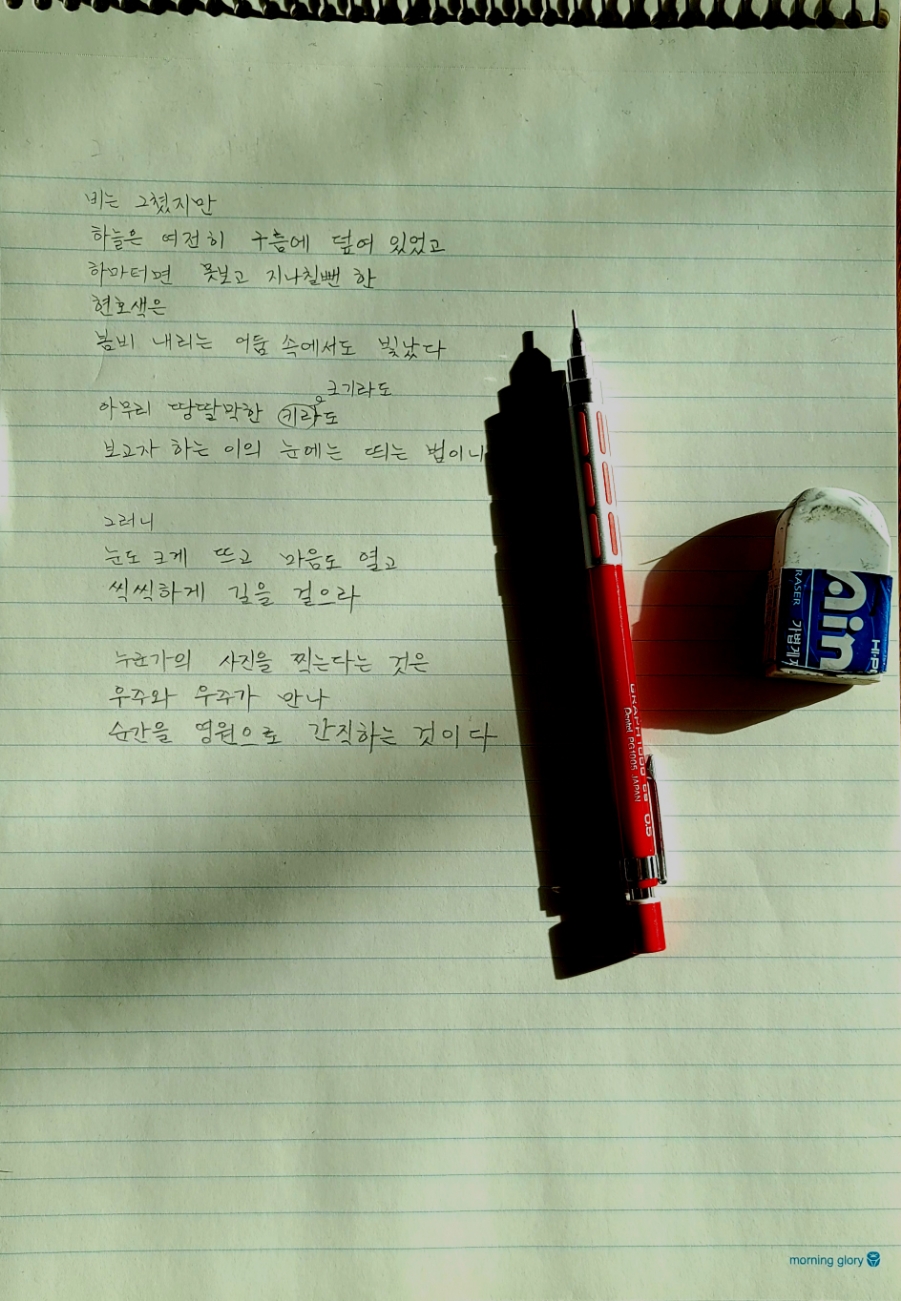 비는 그쳤지만
하늘은 여전히 구름에 덮여 있었고
하마터면 못보고 지나칠뻔 한
현호색은
봄비 내리는 어둠 속에서도 빛났다
크기라도
아무리 땅딸막한 키라도
보고자 하는 이의 눈에는 띄는 법이니
그러니
눈도 크게 뜨고 마음도 열고
씩씩하게 길을 걸으라
누군가의 사진을 찍는다는 것은
우주와 우주가 만나
순간을 영원으로 간직하는 것이다
Pentel PG1005 JAPAN
0.5
Ain
ERASER
HI-PO
morning glory